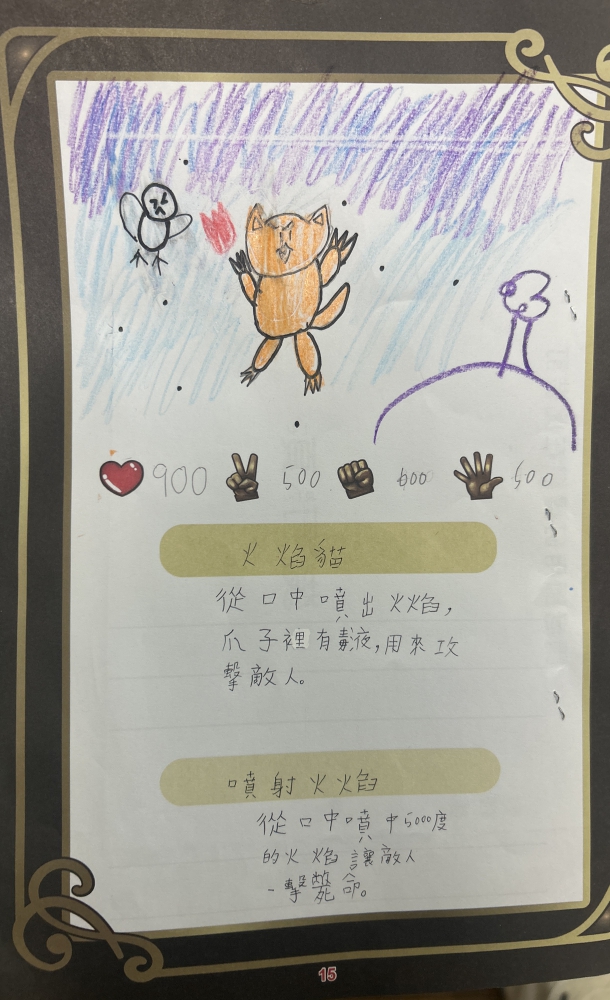 900 500 600 500
火焰貓
從口中噴出火焰，
爪子裡有毒液，用來攻
擊敵人。
噴射火焰
從口中噴中5000度
的火焰讓敵人
一擊斃命。
15